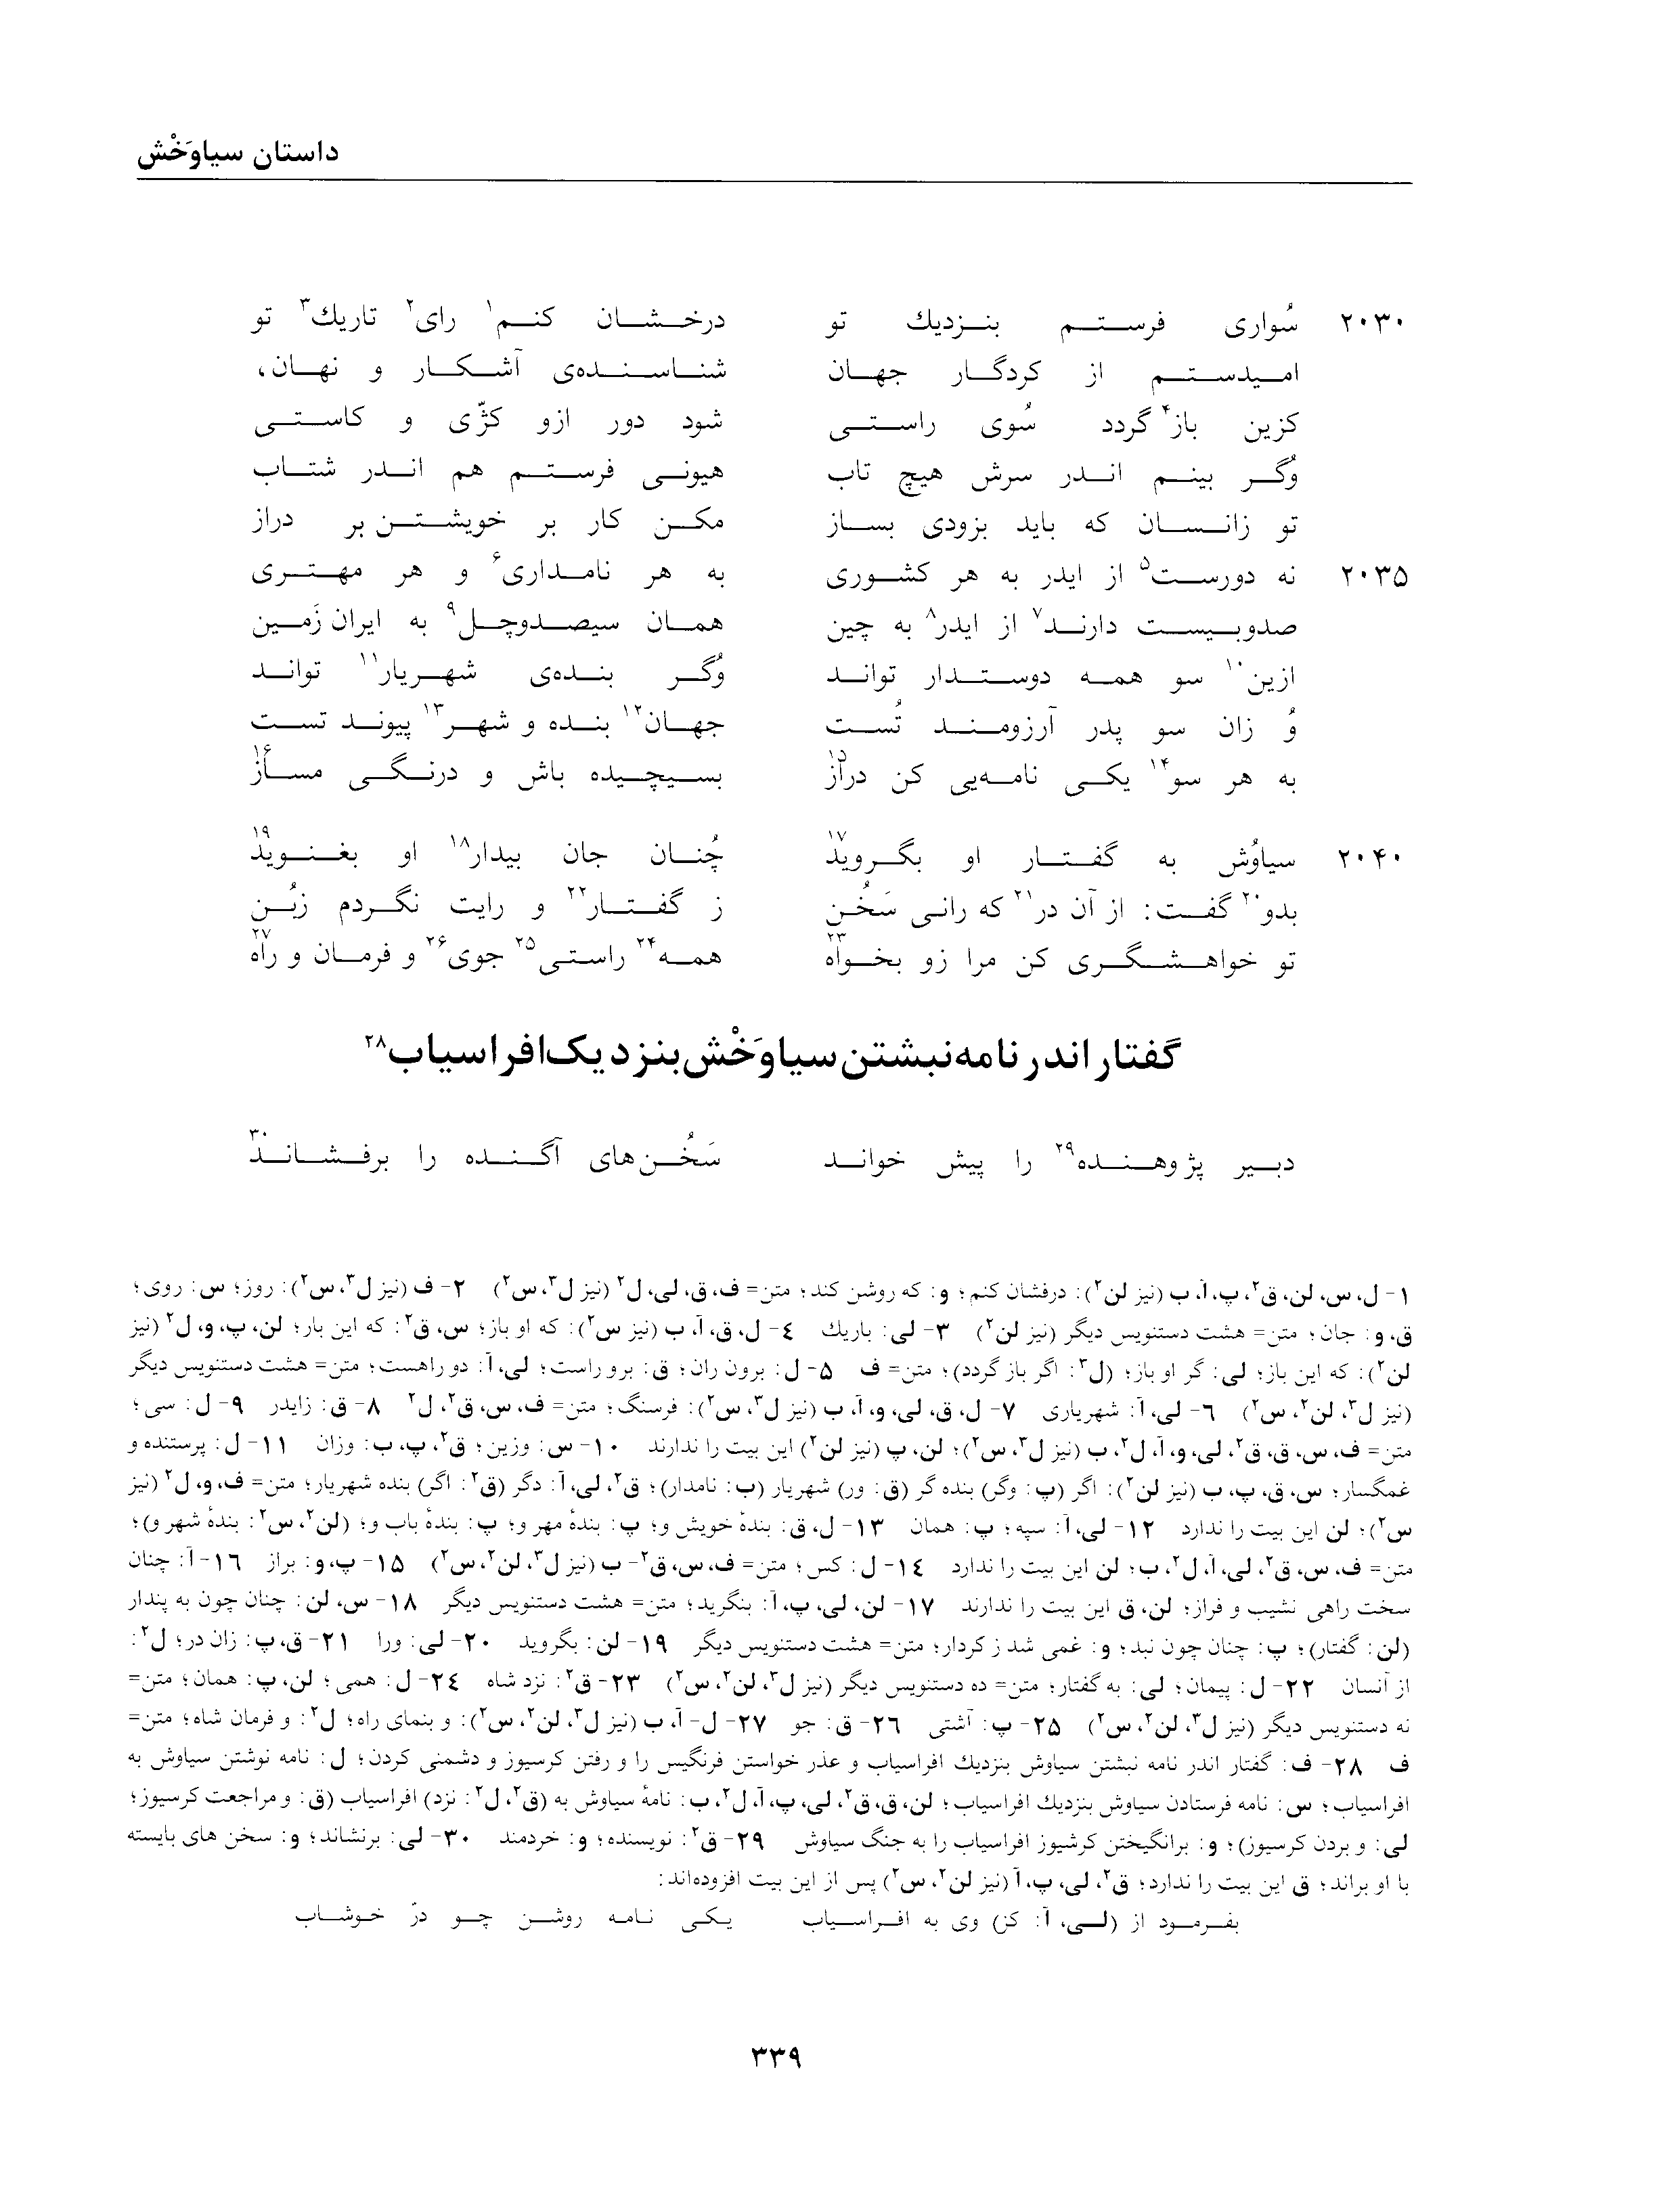 داستان سیاوَخْش
۲۰۳۰ سُواری فرستم بنزدیك تو درخشان کنم۱ رای۲ تاریك۳ تو
امیدستم از کردگار جهان شناسنده‌ی آشکار و نهان،
کزین باز۴ گردد سُوی راستی شود دور ازو کژّی و کاستی
وُگر بینم اندر سرش هیچ تاب هیونی فرستم هم اندر شتاب
تو زانسان که باید بزودی بساز مکن کار بر خویشتن بر دراز
۲۰۳۵ نه دورست۵ از ایدر به هر کشوری به هر نامداری۶ و هر مهتری
صدوبیست دارند۷ از ایدر۸ به چین همان سیصدوچل۹ به ایران زَمین
ازین۱۰ سو همه دوستدار تواند وُگر بنده‌ی شهریار۱۱ تواند
وُ زان سو پدر آرزومند تُست جهان۱۲ بنده و شهر۱۳ پیوند تست
به هر سو۱۴ یکی نامه‌یی کن دراز۱۵ بسیچیده باش و درنگی مساز۱۶
۲۰۴۰ سیاوُش به گفتار او بگروید۱۷ چُنان جان بیدار۱۸ او بغنوید۱۹
بدو۲۰ گفت: از آن در۲۱ که رانی سَخُن ز گفتار۲۲ و رایت نگردم زبُن
تو خواهشگری کن مرا زو بخواه۲۳ همه۲۴ راستی۲۵ جوی۲۶ و فرمان و راه۲۷
گفتار اندر نامه نبشتن سیاوَخْش بنزدیک افراسیاب۲۸
دبیر پژوهنده۲۹ را پیش خواند سَخُن‌های آگنده را برفشاند۳۰
۱- ل، س، لن، ق۲، پ، آ، ب (نیز لن۲): درفشان کنم؛ و: که روشن کند؛ متن= ف، ق، لی، ل۲ (نیز ل۳، س۲) ۲- ف (نیز ل۳، س۲): روز؛ س: روی؛
ق، و: جان؛ متن= هشت دستنویس دیگر (نیز لن۲) ۳- لی: باریك ٤- ل، ق، آ، ب (نیز س۲): که او باز؛ س، ق۲: که این بار؛ لن، پ، و، ل۲ (نیز
لن۲): که این باز؛ لی: گر او باز؛ (ل۳: اگر باز گردد)؛ متن= ف ۵- ل: برون ران؛ ق: برو راست؛ لی، آ: دو راهست؛ متن= هشت دستنویس دیگر
(نیز ل۳، لن۲، س۲) ٦- لی، آ: شهریاری ۷- ل، ق، لی، و، آ، ب (نیز ل۳، س۲): فرسنگ؛ متن= ف، س، ق۲، ل۲ ۸- ق: زایدر ۹- ل: سی؛
متن= ف، س، ق، ق۲، لی، و، آ، ل۲، ب (نیز ل۳، س۲)؛ لن، پ (نیز لن۲) این بیت را ندارند ۱۰- س: وزین؛ ق۲، پ، ب: وزان ۱۱- ل: پرستنده و
غمگسار؛ س، ق، پ، ب (نیز لن۲): اگر (پ: وگر) بنده گر (ق: ور) شهریار (ب: نامدار)؛ ق۲، لی، آ: دگر (ق۲: اگر) بنده شهریار؛ متن= ف، و، ل۲ (نیز
س۲)؛ لن این بیت را ندارد ۱۲- لی، آ: سپه؛ پ: همان ۱۳- ل، ق: بندهٔ خویش و؛ پ: بندهٔ مهر و؛ پ: بندهٔ باب و؛ (لن۲، س۲: بندهٔ شهر و)؛
متن= ف، س، ق۲، لی، آ، ل۲، ب؛ لن این بیت را ندارد ۱٤- ل: کس؛ متن= ف، س، ق۲- ب (نیز ل۳، لن۲، س۲) ۱۵- پ، و: براز ۱٦- آ: چنان
سخت راهی نشیب و فراز؛ لن، ق این بیت را ندارند ۱۷- لن، لی، پ، آ: بنگرید؛ متن= هشت دستنویس دیگر ۱۸- س، لن: چنان چون به پندار
(لن: گفتار)؛ پ: چنان چون نبد؛ و: غمی شد ز کردار؛ متن= هشت دستنویس دیگر ۱۹- لن: بگروید ۲۰- لی: ورا ۲۱- ق، پ: زان در؛ ل۲:
از آنسان ۲۲- ل: پیمان؛ لی: به گفتار؛ متن= ده دستنویس دیگر (نیز ل۳، لن۲، س۲) ۲۳- ق۲: نزد شاه ۲٤- ل: همی؛ لن، پ: همان؛ متن=
نه دستنویس دیگر (نیز ل۳، لن۲، س۲) ۲۵- پ: آشتی ۲٦- ق: جو ۲۷- ل- آ، ب (نیز ل۳، لن۲، س۲): و بنمای راه؛ ل۲: و فرمان شاه؛ متن=
ف ۲۸- ف: گفتار اندر نامه نبشتن سیاوش بنزدیك افراسیاب و عذر خواستن فرنگیس را و رفتن کرسیوز و دشمنی کردن؛ ل: نامه نوشتن سیاوش به
افراسیاب؛ س: نامه فرستادن سیاوش بنزدیك افراسیاب؛ لن، ق، ق۲، لی، پ، آ، ل۲، ب: نامهٔ سیاوش به (ق۲، ل۲: نزد) افراسیاب (ق: و مراجعت کرسیوز؛
لی: و بردن کرسیوز)؛ و: برانگیختن کرشیوز افراسیاب را به جنگ سیاوش ۲۹- ق۲: نویسنده؛ و: خردمند ۳۰- لی: برنشاند؛ و: سخن های بایسته
با او براند؛ ق این بیت را ندارد؛ ق۲، لی، پ، آ (نیز لن۲، س۲) پس از این بیت افزوده‌اند:
بفرمود از (لی، آ: کز) وی به افراسیاب یکی نامه روشن چو درّ خوشاب
۳۳۹